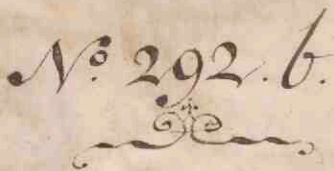 Nº. 292. b.